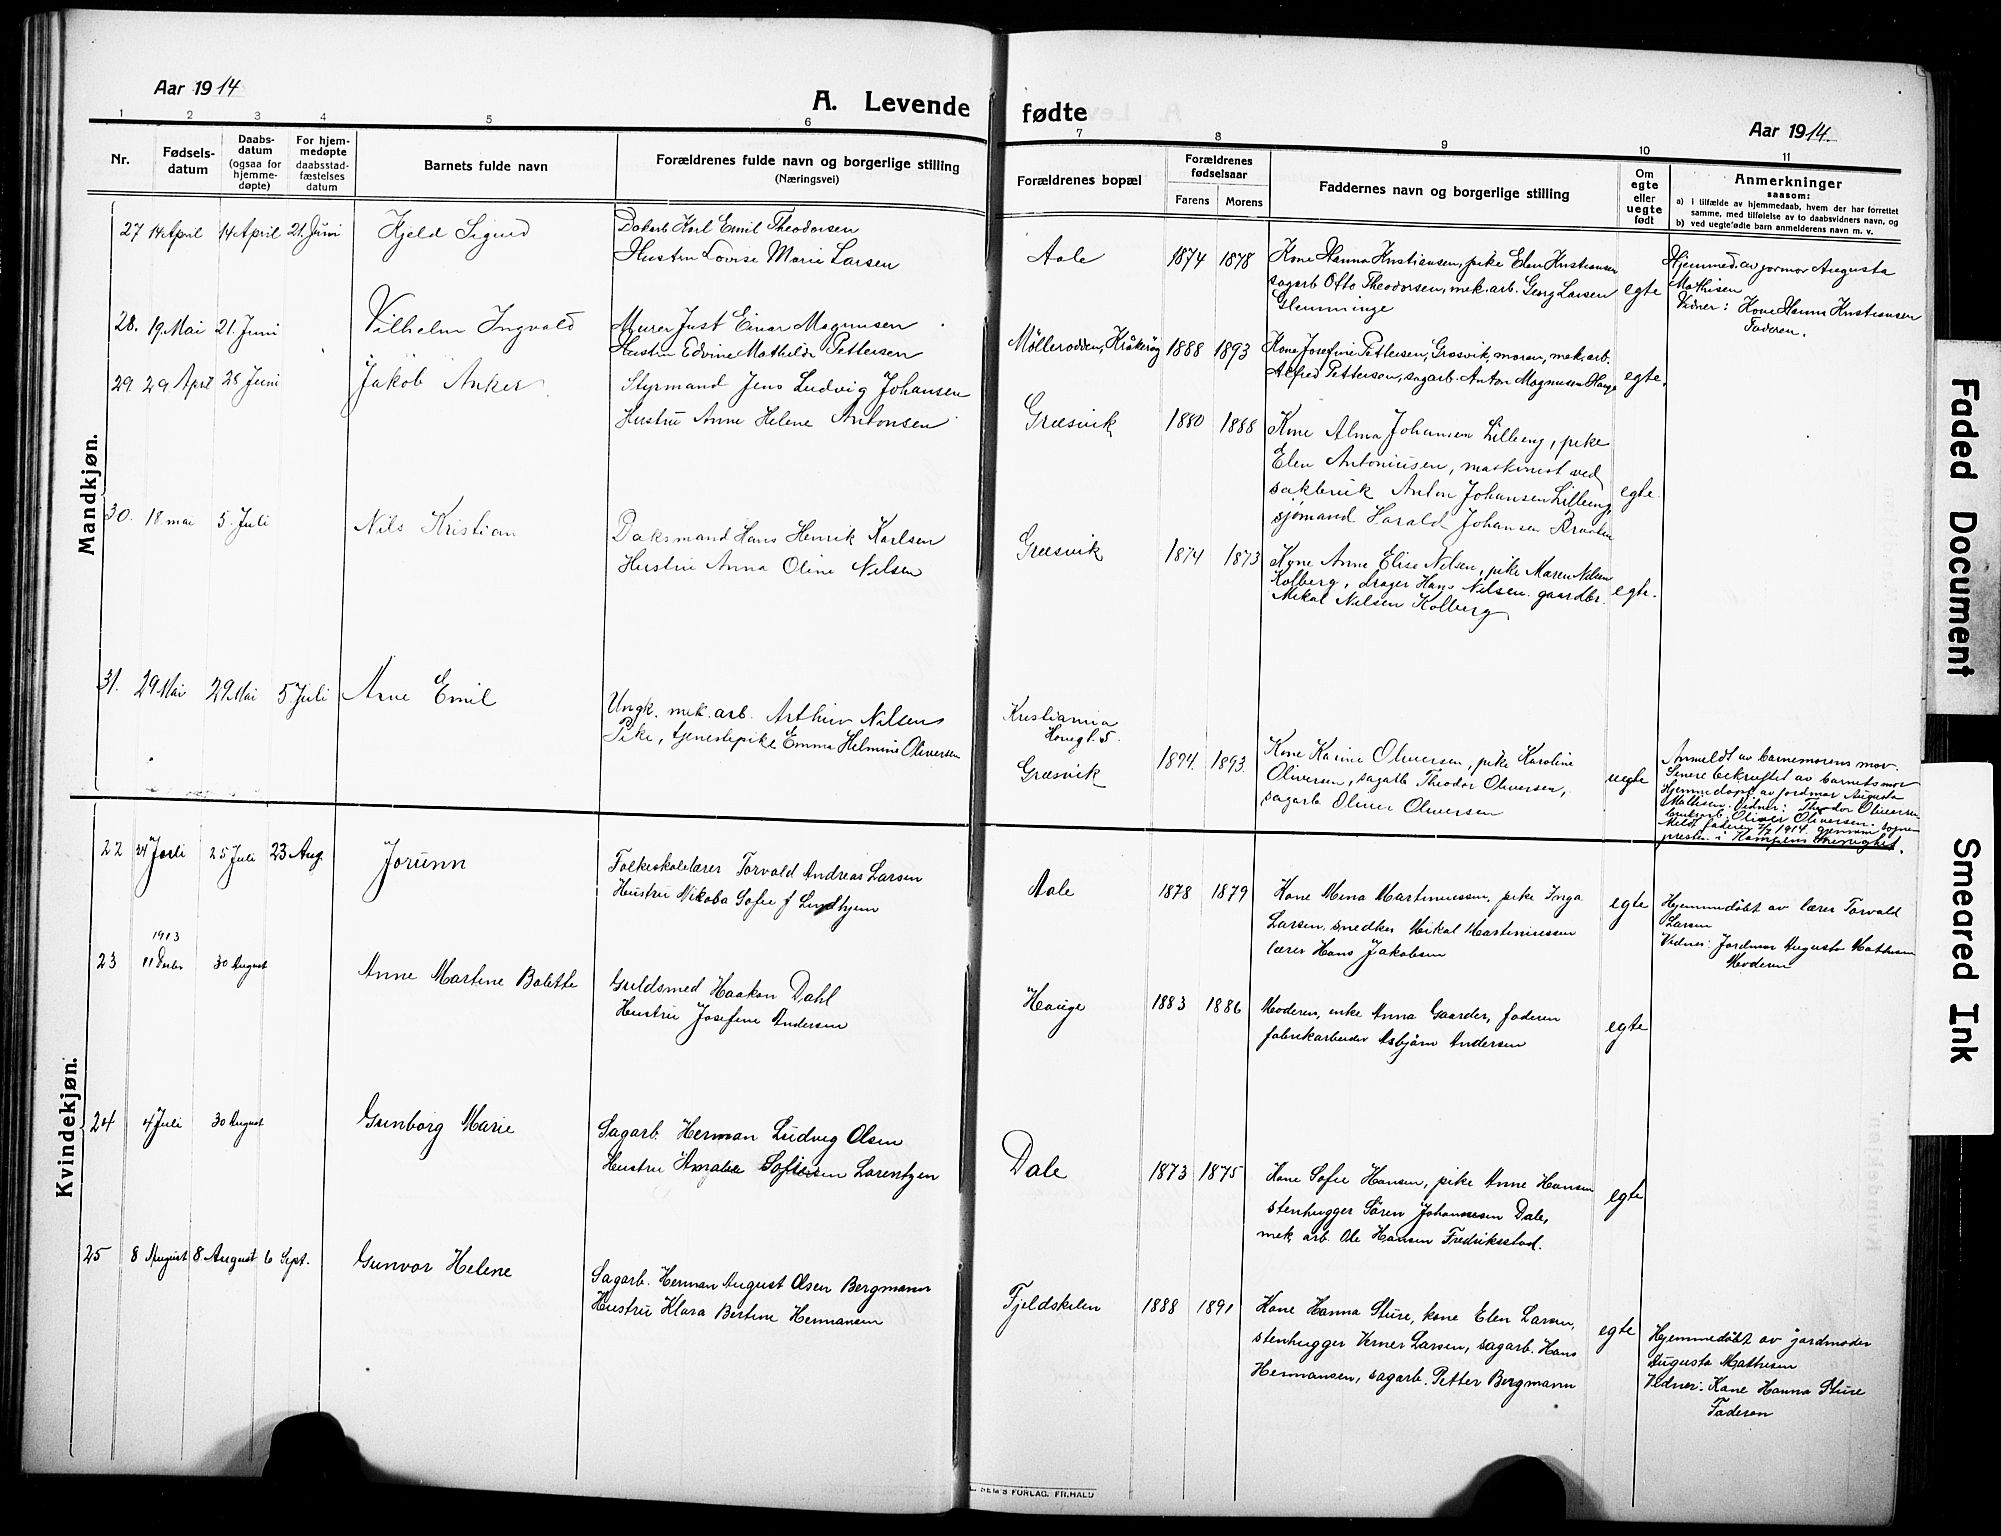 Aar 1914
A. Levende fødte
Aar 1914.
1 2 3 4 5 6 7 8 9 10 11
Nr.
Fødsels-
datum
Daabs-
datum
(ogsaa for
hjemme-
døpte)
For hjem-
medøpte
daabsstad-
fæstelses
datum
Barnets fulde navn
Forældrenes fulde navn og borgerlige stilling
(Næringsvei)
Forældrenes bopæl
Forældrenes
fødselsaar
Farens Morens
Faddernes navn og borgerlige stilling
Om
egte
eller
uegte
født
Anmerkninger
saasom:
a) i tilfælde av hjemmedaab, hvem der har forrettet
samme, med tilføielse av to daabsvidners navn, og
b) ved uegtefødte barn anmelderens navn m. v.
Mandkjøn.
27 14 April 14 April 21. Juni
Kjeld Sigurd
Karl Emil Theodorsen
Hustru Lovise Marie Larsen
Aale
1874 1878
Kone Hanna Kristiansen, pike Elen Kristiansen
sagarb Otto Theodorsen, mek. arb. Georg Larsen
Glemminge
egte
Hjemmed. av jormor Augusta
Mathisen
Vidner: Kone Hanna Kristiansen
Faderen.
28. 19. Mai 21. Juni
Vilhelm Ingvald
Murer Just Einar Magnusen
Hustru Edvine Mathilde Pettersen
Møllerodden, Kråkerøy
1888 1893
Kone Josefine Pettersen, Græsvik, moren, mek. arb.
Alfred Pettersen, sagarb. Anton Magnusen Hauge
egte.
29. 29. April 28 Juni
Jakob Anker
Styrmand Jens Ludvig Johansen
Hustru Anne Helene Antonsen
Græsvik
1880 1888
Kone Alma Johansen Lilleng, pike
Elen Antoniusen, maskinist ved
sakbruk Anton Johansen Lilleng,
sjømand Harald Johansen Braaten
egte.
30. 18 mai 5. Juli
Nils Kristian
Daksmand Hans Henrik Karlsen
Hustru Anna Oline Nilsen
Græsvik
1874 1873
Kone Anne Elise Nilsen, pike Maren Nilsen
Kolberg, drager Hans Nilsen. gaardbr.
Mikal Nilsen Kolberg
egte.
31. 29 Mai 29 Mai 5. Juli
Arne Emil
Ungk. mek. arb. Arthur Nilsen
Pike, tjenestepike Emma Helmine Oliversen
Kristiania
5.
Græsvik
1894. 1893.
Kone Karine Oliversen, pike Karoline
Oliversen, sagarb Theodor Oliversen,
sagarb Oliver Oliversen
uegte
Anmeldt av barnemorens mor.
Senere bekræftet av barnets mor
Hjemmedøpt av jordmor Augusta
Mathisen. Vidner: Theodor Oliversen
Oliver Oliversen.
Meldt faderen 7/7 1914 gjennem sogne-
presten i Kampens menighet.
Kvindekjøn.
22 24 Juli 25 Juli 23 Aug
Jorunn
Folkeskolelærer Torvald Andreas Larsen
Hustru Nikoba Sofie f Lindhjem
Aale
1878 1879
Kone Mina Martiniussen, pike Inga
Larsen, snedker Mikal Martiniussen
lærer Hans Jakobsen
egte
Hjemmedøbt av lærer Torvald
Larsen
Vidner: Jordmor Augusta Mathisen
Moderen
1913
23 11 Decbr 30 August
Anne Martine Bolette
Guldsmed Haakon Dahl
Hustru Josefine Andersen
Hauge
1883 1886
Moderen, enke Anna Gaarder, faderen
fabrikarbeider Asbjørn Andersen
egte
24 4 Juli 30 August
Gunborg Marie
Sagarb. Herman Ludvig Olsen
Hustru Amalie Lorentzen
Dale
1873 1875
Kone Sofie Hansen, pike Anne Hansen
stenhugger Søren Johannesen Dale,
mek. arb. Ole Hansen Fredriksstad.
egte
25 8 August 8 August 6 Sept.
Gunvor Helene
Sagarb. Herman August Olsen Bergmann
Hustru Klara Bertine Hermansen
Fjeldskilen
1888 1891
Kone Hanna Sture, kone Elen Larsen,
stenhugger Verner Larsen, sagarb. Hans
Hermansen, sagarb. Petter Bergmann
egte
Hjemmedøbt av jordmoder
Augusta Mathisen
Vidner: Kone Hanna Sture
Faderen
FORLAG. FR.HALD
Faded Document
Smeared Ink